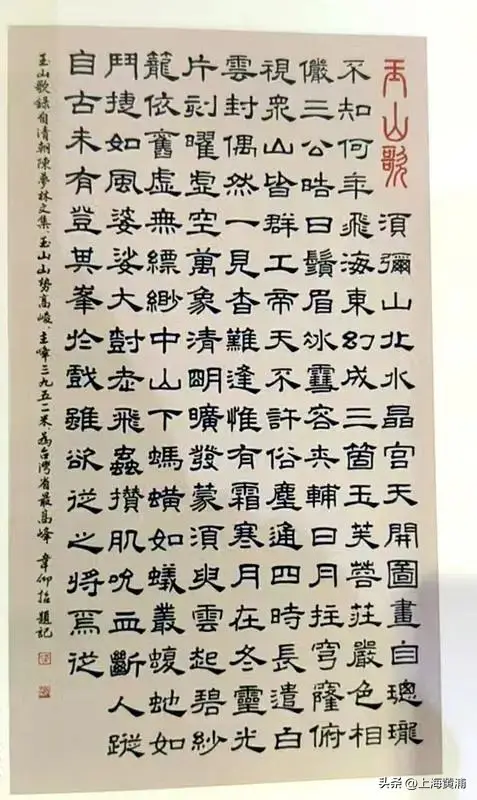 玉山歌
須彌山北水晶宮天開圖畫自璁瓏
不知何年飛海東幻成三箇玉芙蓉莊嚴色相
儼三公皓白鬚眉冰雪容夾輔日月拄穹窿俯
視衆山皆群工帝天不許俗塵通四時長遣白
雲封偶然一見杳難逢惟有霜寒月在冬靈光
片刻曜虛空萬象清明曠發蒙須臾雲起碧紗
籠依舊虛無縹緲中山下螞蟥如蟻叢蝮虵如
鬥捷如風婆娑大樹老飛蟲攢肌吮血斷人蹤
自古未有登其峯於戲雖欲從之將焉從
玉山歌錄自清朝陳夢林文集、玉山山勢高峻、主峰三九五二米、爲台灣省最高峰 韋仰題記
头条 @上海黄浦